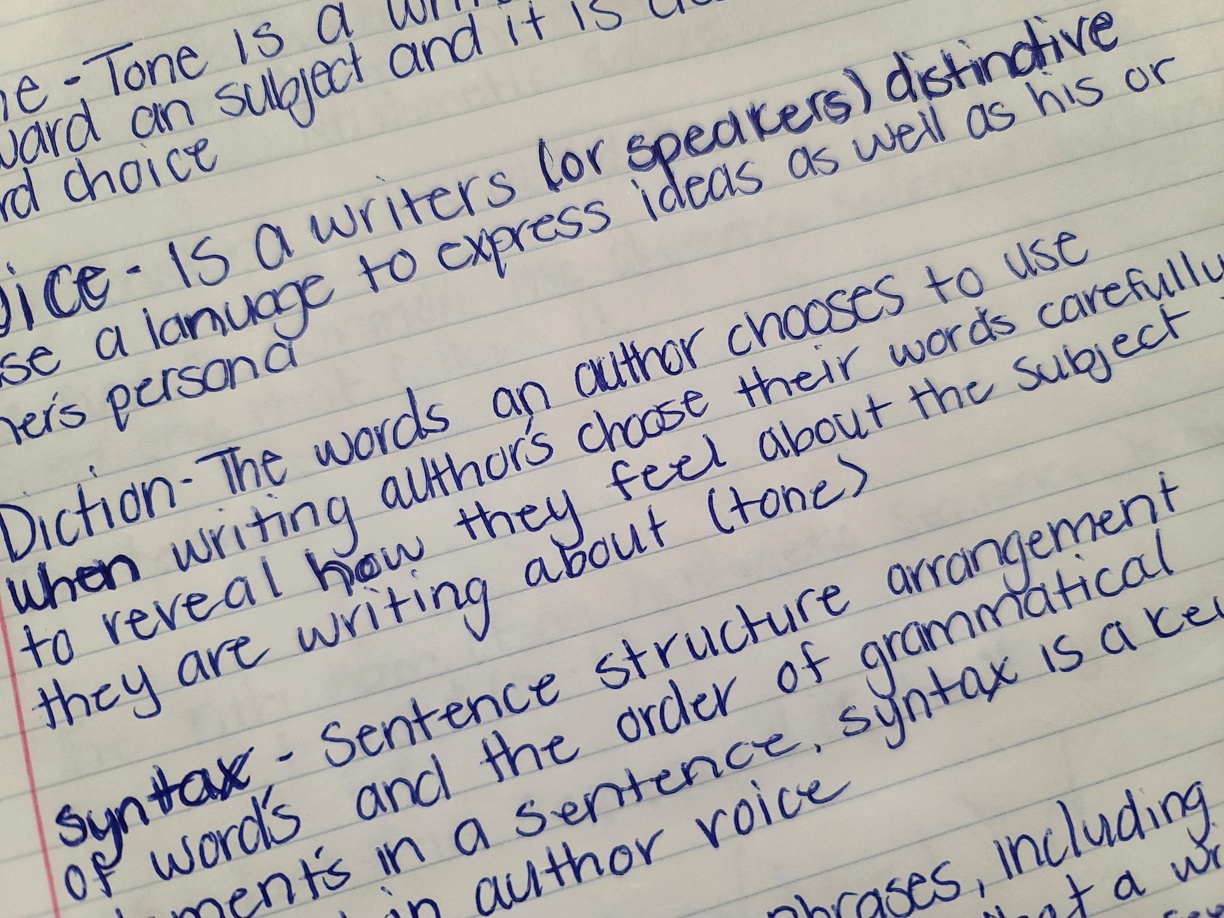 ne - Tone is a
ward an subject and it is
rd choice
oice - Is a writers (or speakers) distinctive
se a lanuage to express ideas as well as his or
her's persona
Diction - The words an author chooses to use
when writing author's choose their words carefully
to reveal how they feel about the subject
they are writing about (tone)
syntax - Sentence structure arrangement
of word's and the order of grammatical
ments in a sentence, syntax is a
in author voice
phrases, including
a